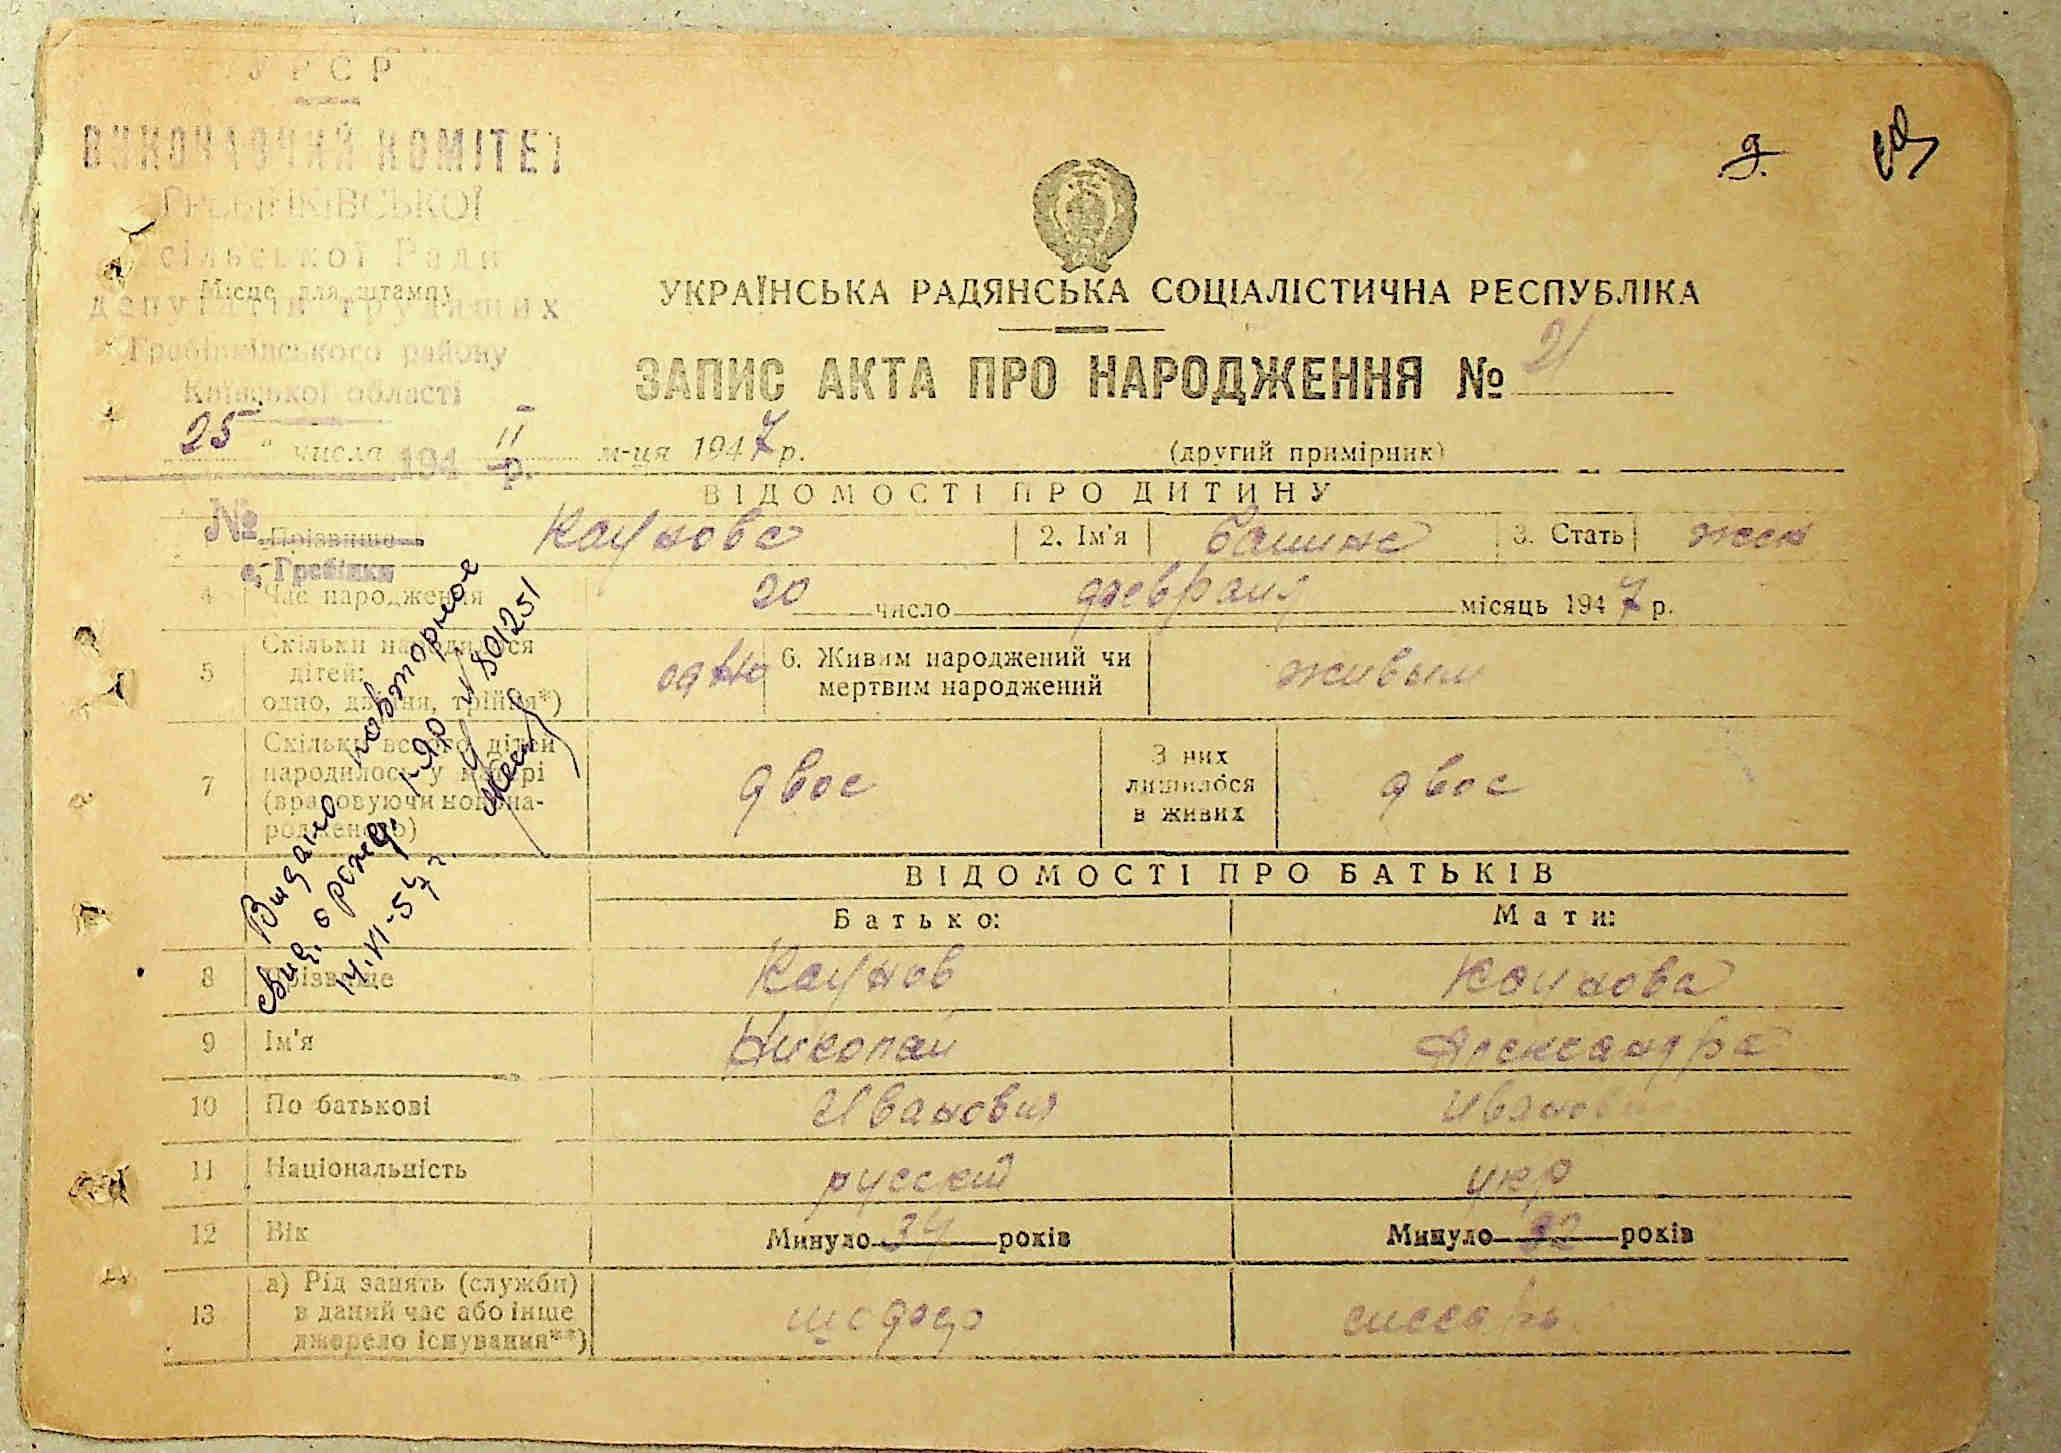 УРСР
ВИКОНАВЧИЙ КОМІТЕТ
ГРЕБІНКІВСЬКОЇ
сільської Ради
Місце для штампу
депутатів трудящих
Гребінківського району
Київської області
УКРАЇНСЬКА РАДЯНСЬКА СОЦІАЛІСТИЧНА РЕСПУБЛІКА
ЗАПИС АКТА ПРО НАРОДЖЕННЯ № 21
25 " числа II м-ця 1947 р.
194 р.
(другий примірник)
ВІДОМОСТІ ПРО ДИТИНУ
№
Прізвище Каунова 2. Ім'я 3. Стать жен
с. Гребінки
4 Час народження 20 число февраля місяць 1947 р.
5 Скільки народилося дітей: одно, двійня, трійня*) одно 6. Живим народжений чи мертвим народжений живым
7 Скільки всього дітей народилось у матері (враховуючи новонародженого) двое З них лишилося в живих двое
Видано повторное
свид. о рожд. 801251
14.VI-57 г.
ВІДОМОСТІ ПРО БАТЬКІВ
Батько: Мати:
8 Прізвище Каунов Каунова
9 Ім'я Николай Александра
10 По батькові Иванович Ивановна
11 Національність русский укр
12 Вік Минуло 34 років Минуло 32 років
13 а) Рід занять (служби) в даний час або інше джерело існування**)